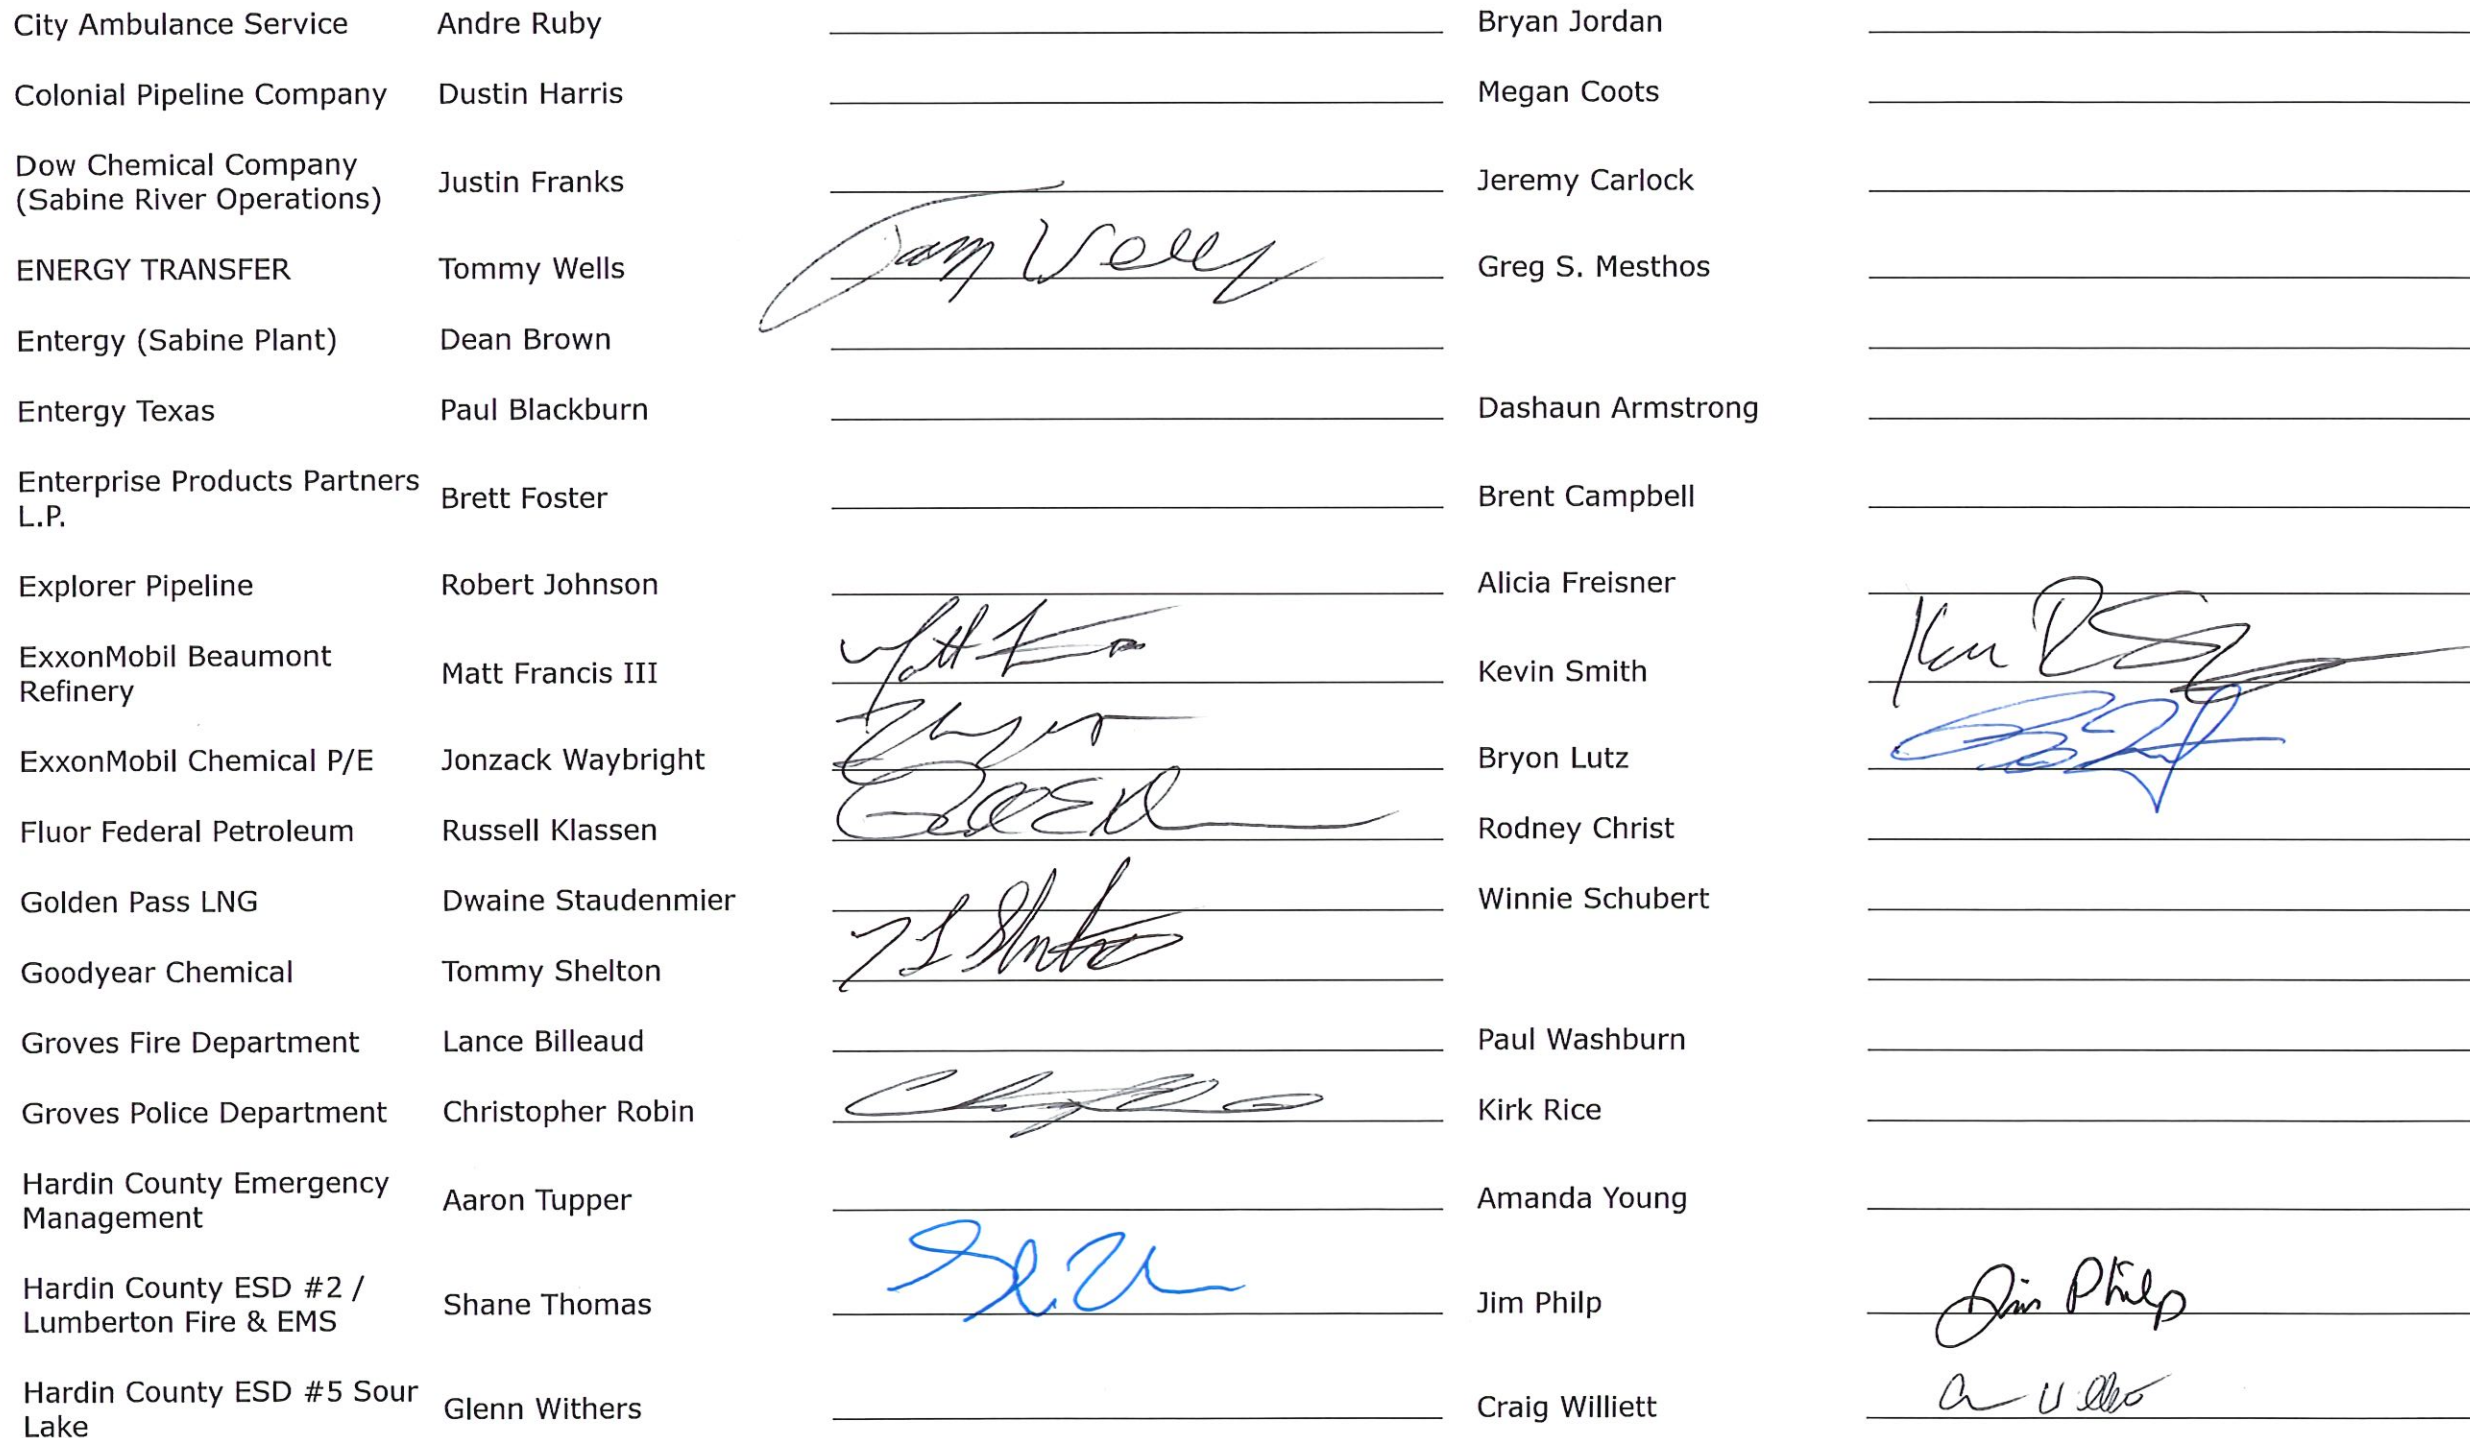 City Ambulance Service Andre Ruby Bryan Jordan
Colonial Pipeline Company Dustin Harris Megan Coots
Dow Chemical Company
(Sabine River Operations) Justin Franks Jeremy Carlock
ENERGY TRANSFER Tommy Wells Tom Wells Greg S. Mesthos
Entergy (Sabine Plant) Dean Brown
Entergy Texas Paul Blackburn Dashaun Armstrong
Enterprise Products Partners
L.P. Brett Foster Brent Campbell
Explorer Pipeline Robert Johnson Alicia Freisner
ExxonMobil Beaumont
Refinery Matt Francis III Matt Kevin Smith
ExxonMobil Chemical P/E Jonzack Waybright Bryon Lutz
Fluor Federal Petroleum Russell Klassen Rodney Christ
Golden Pass LNG Dwaine Staudenmier Winnie Schubert
Goodyear Chemical Tommy Shelton
Groves Fire Department Lance Billeaud Paul Washburn
Groves Police Department Christopher Robin Kirk Rice
Hardin County Emergency
Management Aaron Tupper Amanda Young
Hardin County ESD #2 /
Lumberton Fire & EMS Shane Thomas Jim Philp Jim Philp
Hardin County ESD #5 Sour
Lake Glenn Withers Craig Williett